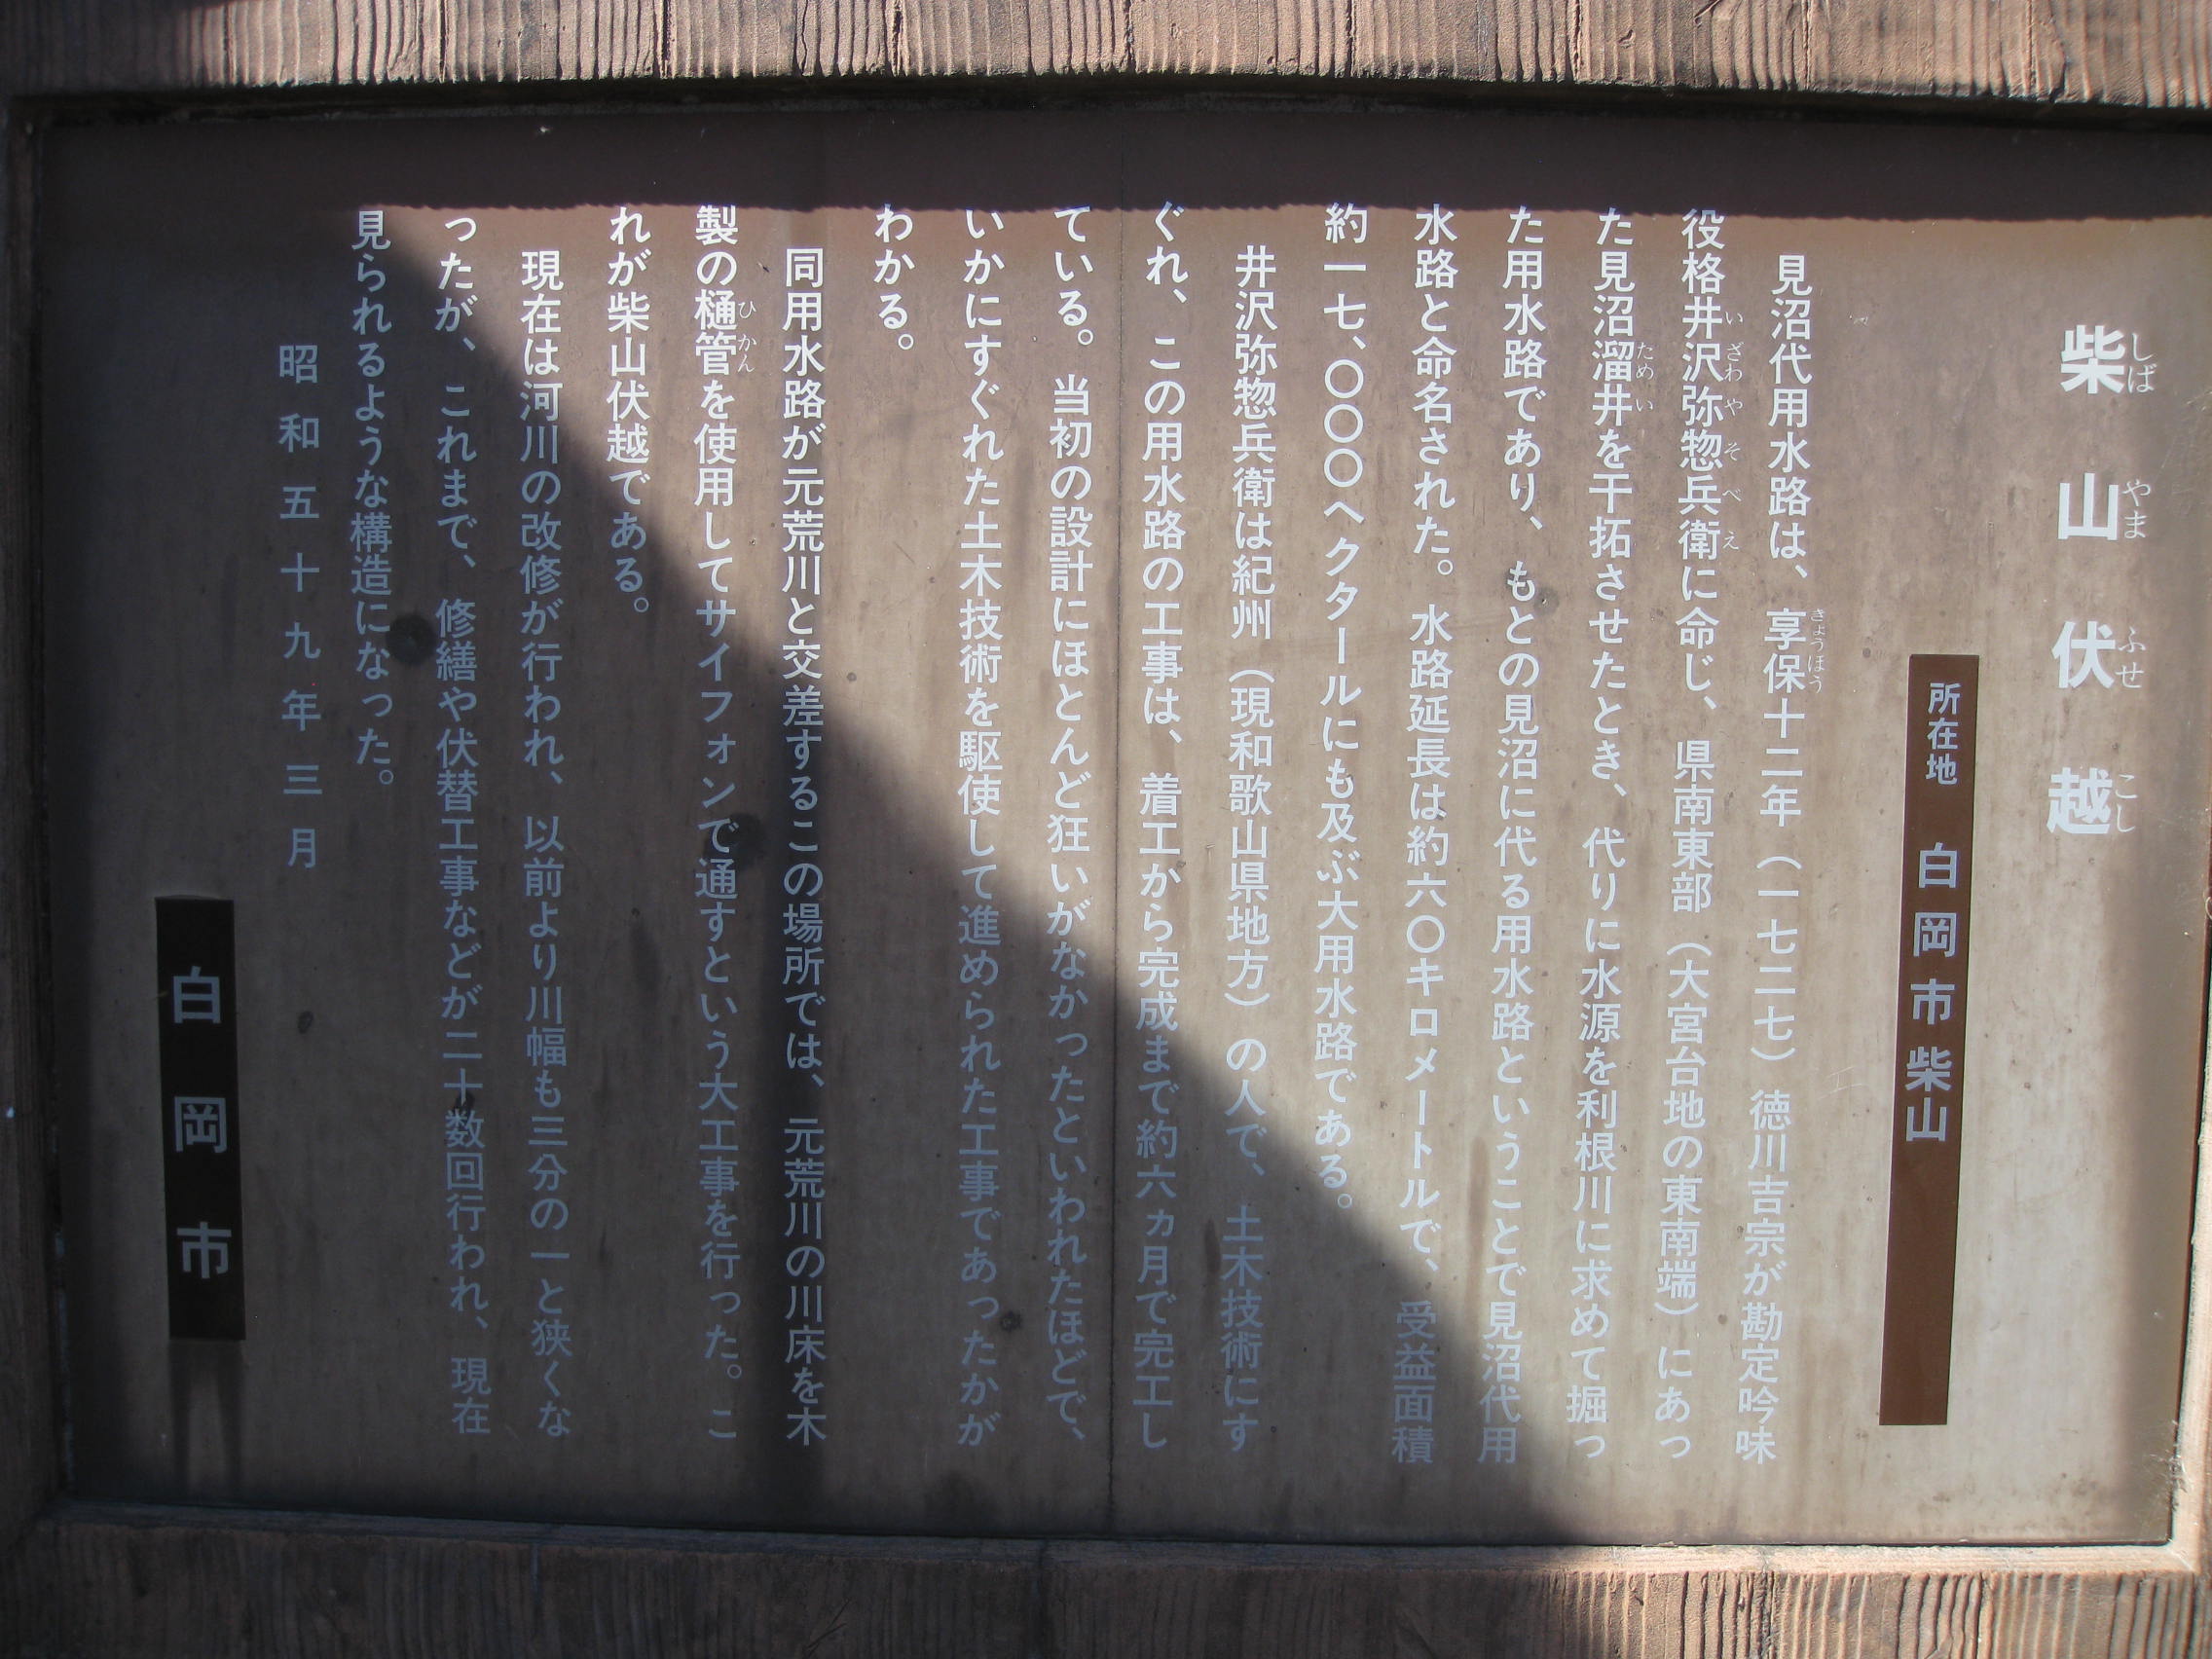 柴山伏越
しばやまふせこし
所在地 白岡市柴山
見沼代用水路は、享保十二年（一七二七）徳川吉宗が勘定吟味
きょうほう
役格井沢弥惣兵衛に命じ、県南東部（大宮台地の東南端）にあっ
いざわやそべえ
た見沼溜井を干拓させたとき、代りに水源を利根川に求めて掘っ
ためい
た用水路であり、もとの見沼に代る用水路ということで見沼代用
水路と命名された。水路延長は約六〇キロメートルで、受益面積
約一七、〇〇〇ヘクタールにも及ぶ大用水路である。
井沢弥惣兵衛は紀州（現和歌山県地方）の人で、土木技術にす
ぐれ、この用水路の工事は、着工から完成まで約六ヵ月で完工し
ている。当初の設計にほとんど狂いがなかったといわれたほどで、
いかにすぐれた土木技術を駆使して進められた工事であったかが
わかる。
同用水路が元荒川と交差するこの場所では、元荒川の川床を木
製の樋管を使用してサイフォンで通すという大工事を行った。こ
ひかん
れが柴山伏越である。
現在は河川の改修が行われ、以前より川幅も三分の一と狭くな
ったが、これまで、修繕や伏替工事などが二十数回行われ、現在
見られるような構造になった。
昭和五十九年三月
白岡市